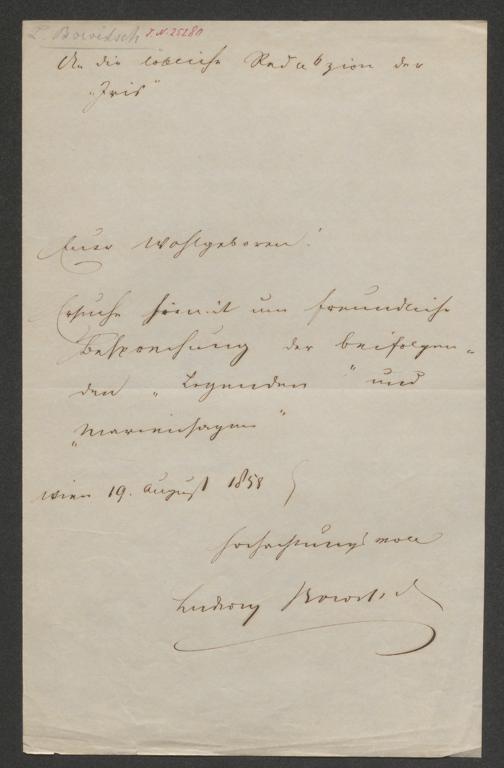 L. Bowitsch J.N. 25280
An die löbliche Redakzion der
„Iris“
Euer Wohlgeboren!
Ersuche hiemit um freundliche
Besprechung der beifolgen-
den „Legenden“ und
„Mariensagen“
Wien 19. August 1858
Hochachtungsvoll
Ludwig Bowitsch